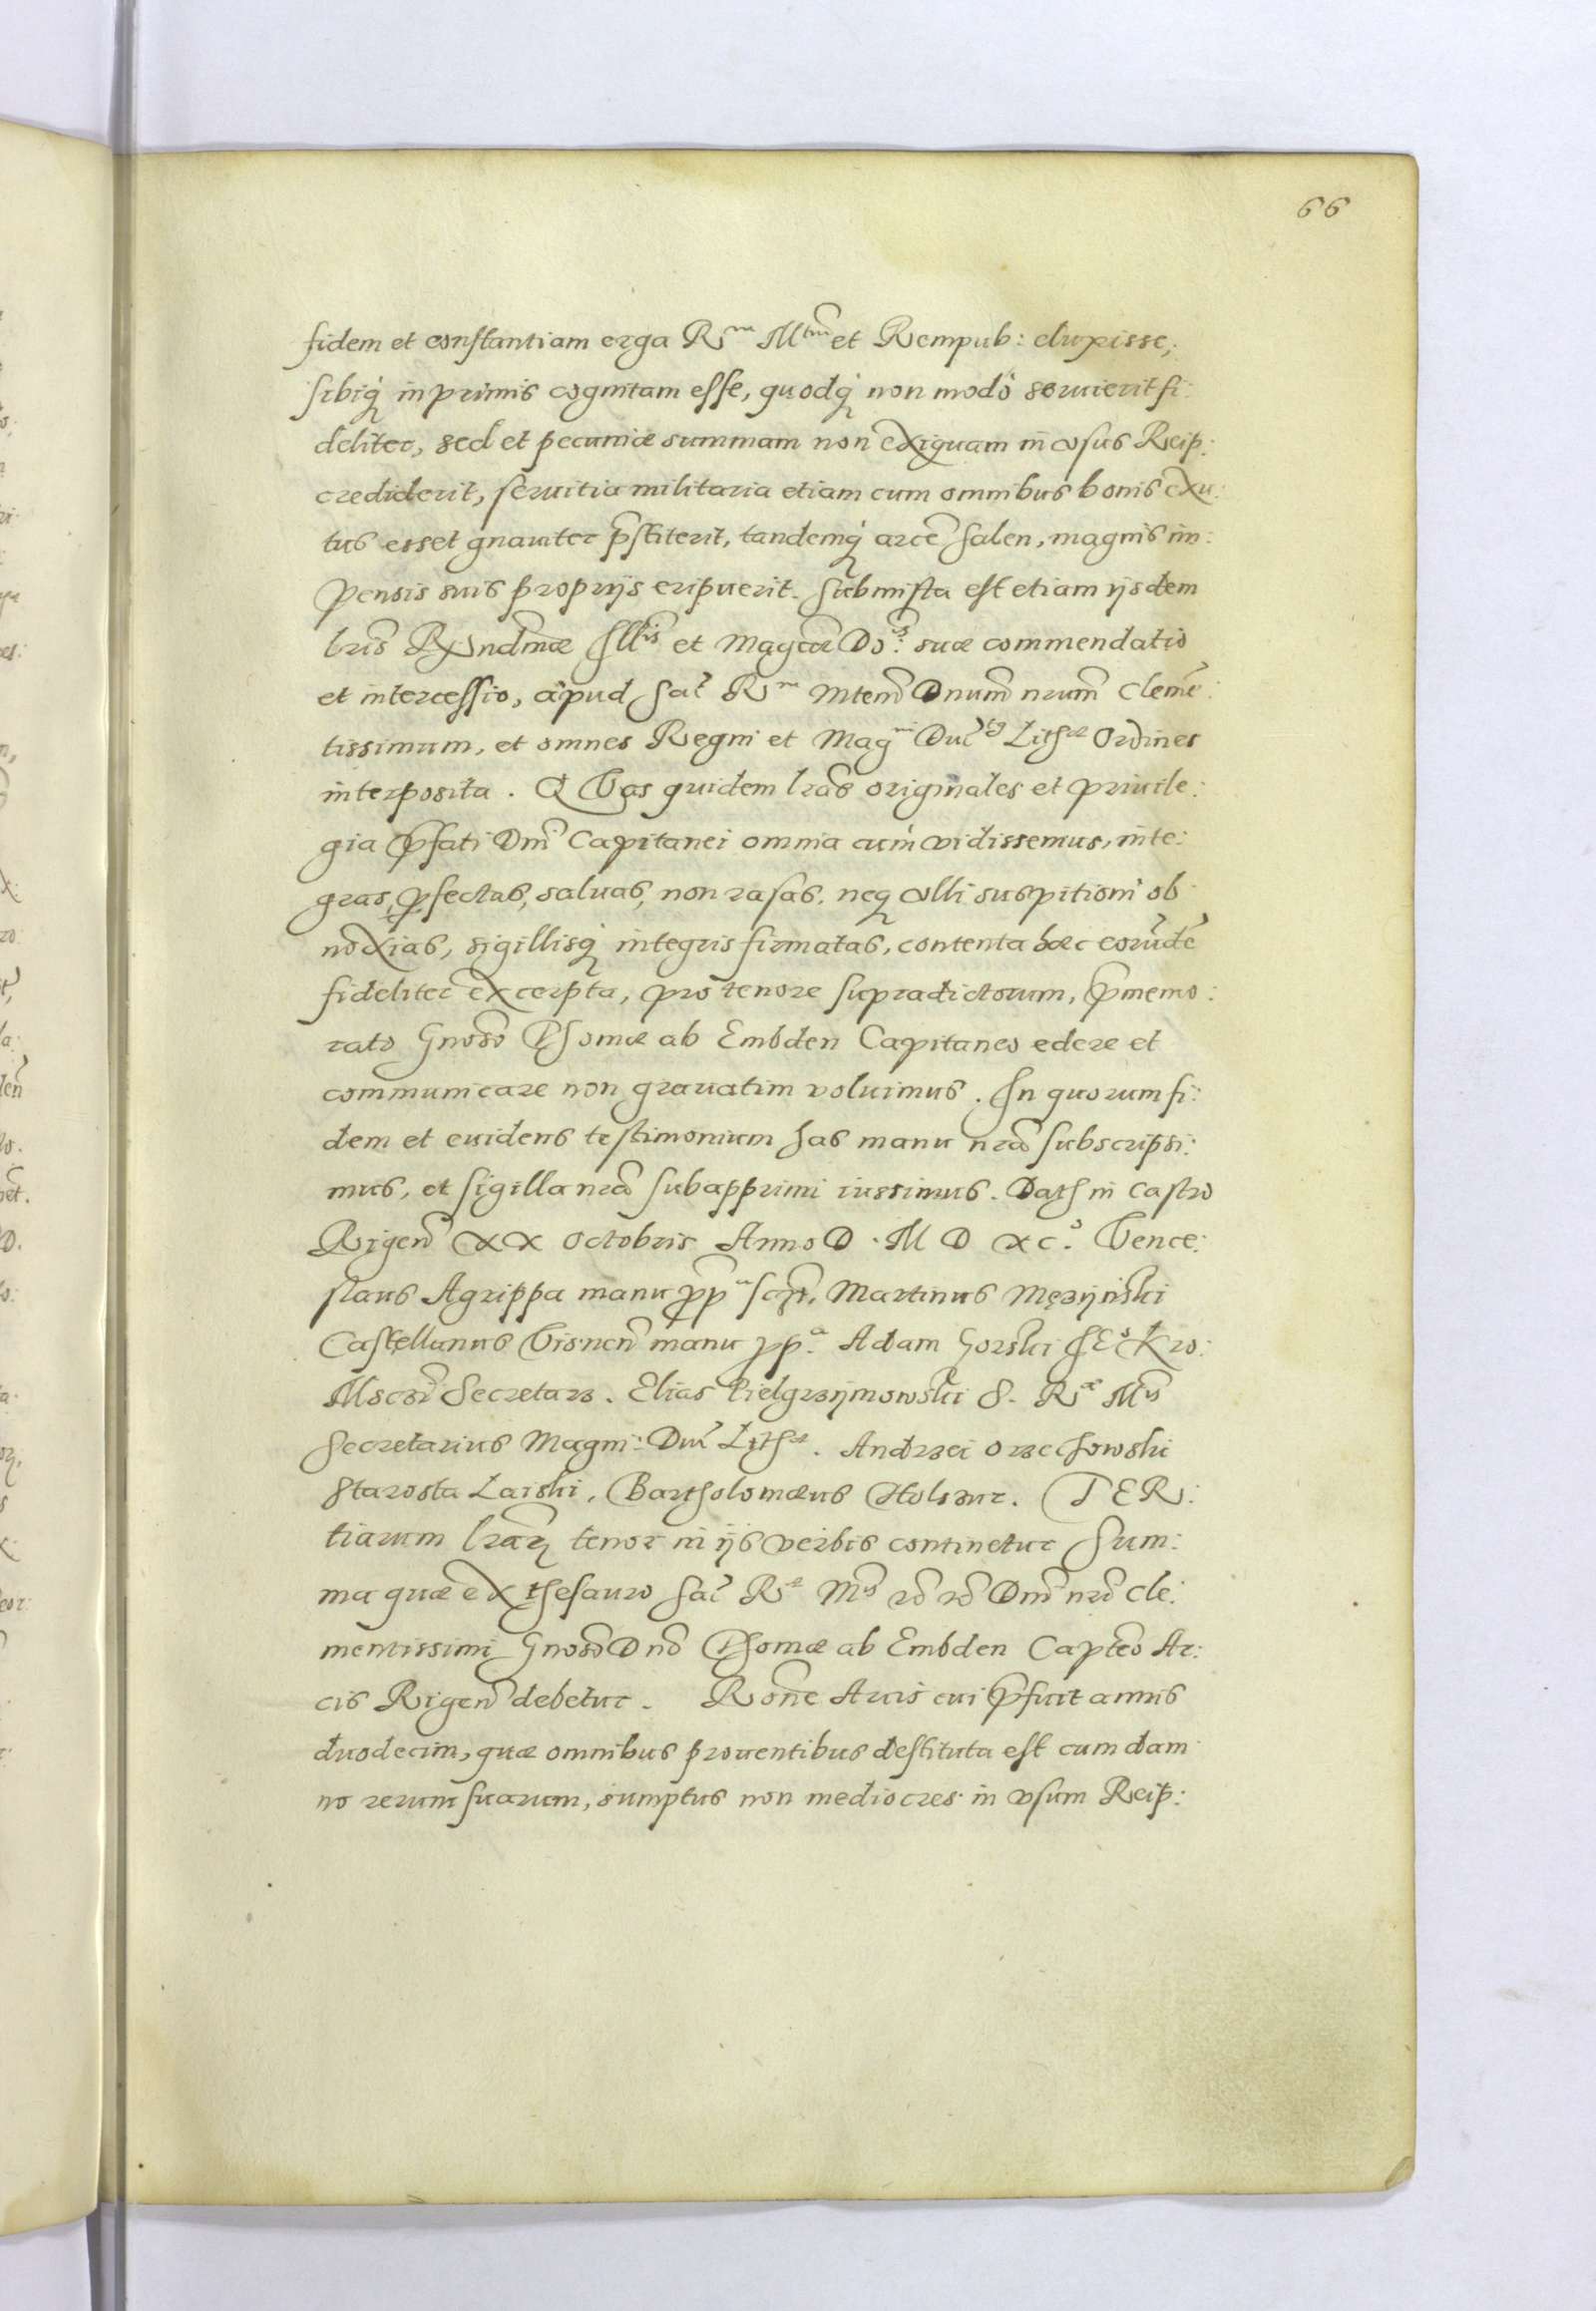 66
fidem et constantiam erga Rm Mtm et Rempub: eluxisse,
sibiq́ inprimis cognitam esse, quodq́ non modò seruierit fi:
deliter, sed et pecuniæ summam non exiguam in vsus Reip:
crediderit, seruitia militaria etiam cum omnibus bonis exu:
tus esset gnauiter p̃stiterit, tandemq́ arcẽ Salen, magnis im:
pensis suis proprijs eripuerit. Submissa est etiam ijsdem
lris̃ Rndmæ Illis et Magcæ Dois: suæ commendatio
et intercessio, apud Sac̃ Rm Mtem̃ Dnum̃ nrum̃ Clemẽ:
tissimum, et omnes Regni et Magni Duc̃tus Lithæ Ordines
interposita. QVas quidem lras̃ originales et priuile:
gia p̃fati Dni Capitanei omnia cum vidissemus, inte:
gras, pfectas, saluas, non rasas, neq́ ulli suspitioni ob
noxias, sigillisq́ integris firmatas, contenta hæc eorũdẽ
fideliter excerpta, pro tenore supradictorum, p̃memo:
rato Gnoso Thomæ ab Embden Capitaneo edere et
communicare non grauatim voluimus. In quorum fi:
dem et euidens testimonium has manu nra subscripsi:
mus, et sigilla nra subapprimi iussimus. Dath in Castro
Rigen̄ XX Octobris Anno D. M D XC.o Vence:
slaus Agrippa manu ppa scpt, Martinus Męzyński
Castellanus Visnen̄ manu ppa. Adam Gorski JEo Kro:
Msczi Secretarz. Elias Pielgrzymowski S. Ræ Mtis
Secretarius Magni: Duc̃ Lithæ. Andrzei Orzechowski
Starosta Laiski, Bartholomæus Holszur. TER:
tiarum lrarȝ tenor in ijs verbis continetur Sum:
ma quæ ex thesauro Sac̃ Ræ Mtis Dni nri cle:
mentissimi Gnoso Dno Thomæ ab Embden Capteo Ar:
cis Rigen̄ debetur. Rone Arcis cui p̃fuit annis
duodecim, quæ omnibus prouentibus destituta est cum dam
no rerum suarum, sumptus non mediocres in vsum Reip: